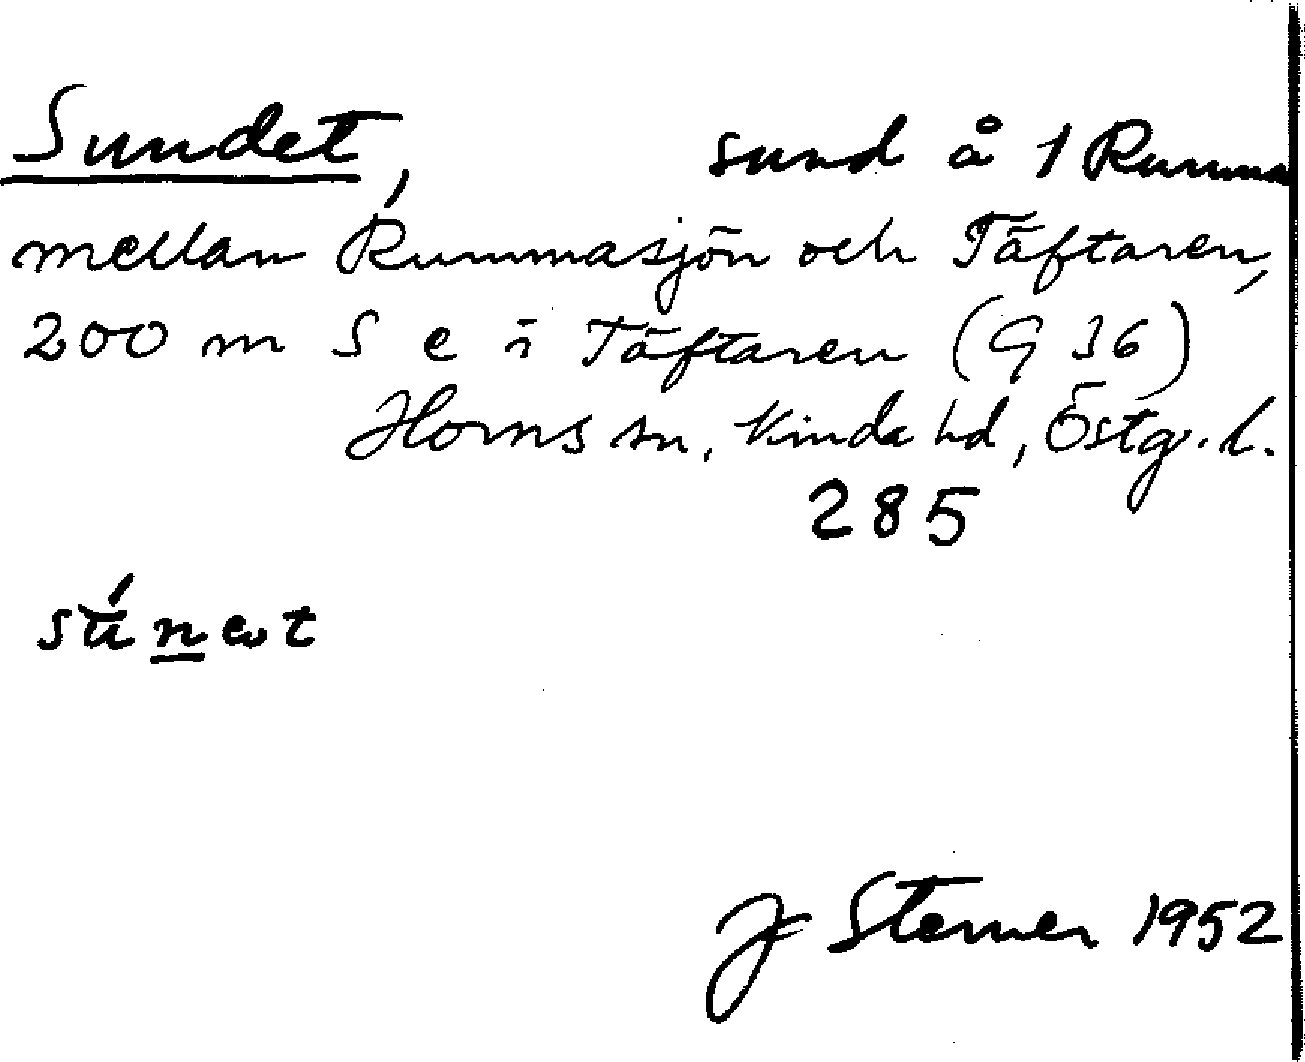 Sundet, sund å 1 Rumma
mellan Rummasjön och Täftaren,
200 m S e i Täftaren (G 36)
Horns sn, Kinda hd, Östg. l.
285
J Sterner 1952